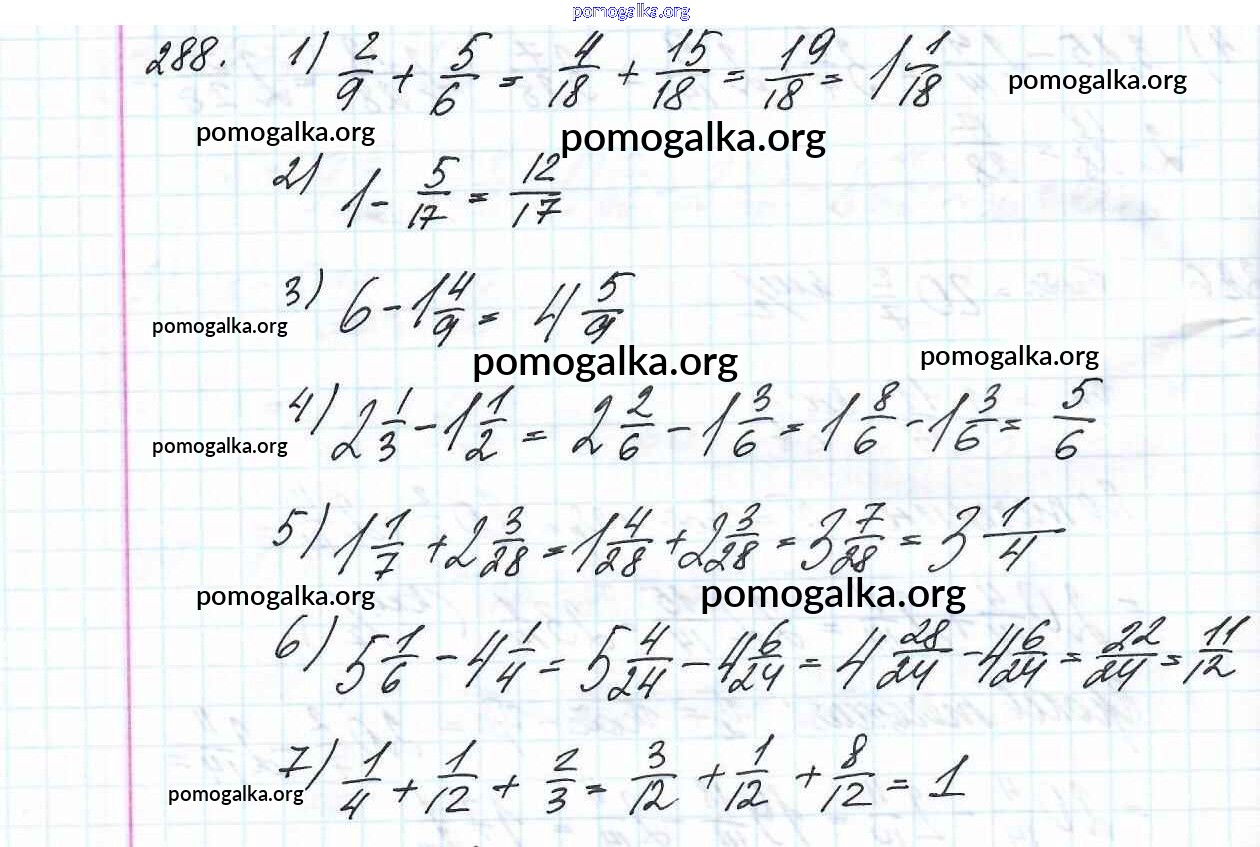 pomogalka.org
288. 1) 2/9 + 5/6 = 4/18 + 15/18 = 19/18 = 1 1/18 pomogalka.org
pomogalka.org pomogalka.org
2) 1 - 5/17 = 12/17
3) 6 - 1 4/9 = 4 5/9
pomogalka.org
pomogalka.org pomogalka.org
4) 2 1/3 - 1 1/2 = 2 2/6 - 1 3/6 = 1 8/6 - 1 3/6 = 5/6
pomogalka.org
5) 1 1/7 + 2 3/28 = 1 4/28 + 2 3/28 = 3 7/28 = 3 1/4
pomogalka.org pomogalka.org
6) 5 1/6 - 4 1/4 = 5 4/24 - 4 6/24 = 4 28/24 - 4 6/24 = 22/24 = 11/12
7) 1/4 + 1/12 + 2/3 = 3/12 + 1/12 + 8/12 = 1
pomogalka.org